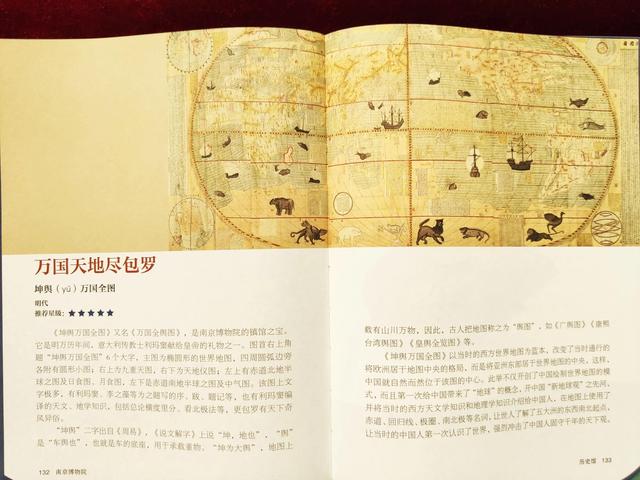 万国天地尽包罗
坤舆（yú）万国全图
明代
推荐星级：★★★★★
《坤舆万国全图》又名《万国全舆图》，是南京博物院的镇馆之宝。
它是明万历年间，意大利传教士利玛窦献给皇帝的礼物之一。图首右上角
题“坤舆万国全图”6个大字，主图为椭圆形的世界地图，四周圆弧边旁
各附有圆形小图；右上为九重天图，右下为天地仪图；左上有赤道北地半
球之图及日食图、月食图，左下是赤道南地半球之图及中气图。该图上文
字极多，有利玛窦、李之藻等为之题写的序、跋、题记等，也有利玛窦编
译的天文、地学知识，包括总论横度里分、看北极法等，更包罗有天下奇
风异俗。
“坤舆”二字出自《周易》，《说文解字》上说“坤，地也”，“舆”
是“车舆也”，也就是车的底座，用于承载重物，“坤为大舆”，地图上
132 南京博物院
载有山川万物，因此，古人把地图称之为“舆图”，如《广舆图》《康熙
台湾舆图》《皇舆全览图》等。
《坤舆万国全图》以当时的西方世界地图为蓝本，改变了当时通行的
将欧洲居于地图中央的格局，而是将亚洲东部居于世界地图的中央，这样，
中国就自然而然位于该图的中心。此举不仅开创了中国绘制世界地图的模
式，而且第一次给中国带来了“地球”的概念，开中国“新地球观”之先河，
并将当时的西方天文学知识和地理学知识介绍给中国人，在地图上使用了
赤道、回归线、极圈、南北极等名词，让世人了解了五大洲的东西南北起点，
让当时的中国人第一次认识了世界，强烈冲击了中国人固守千年的天下观。
历史馆 133